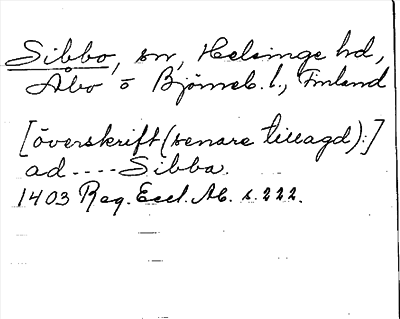 Sibbo, sn, Helsinge hd,
Åbo o Björneb. l., Finland
[överskrift (senare tillagd):]
ad ---- Sibba.
1403 Reg. Eccl. Ab. s. 222.